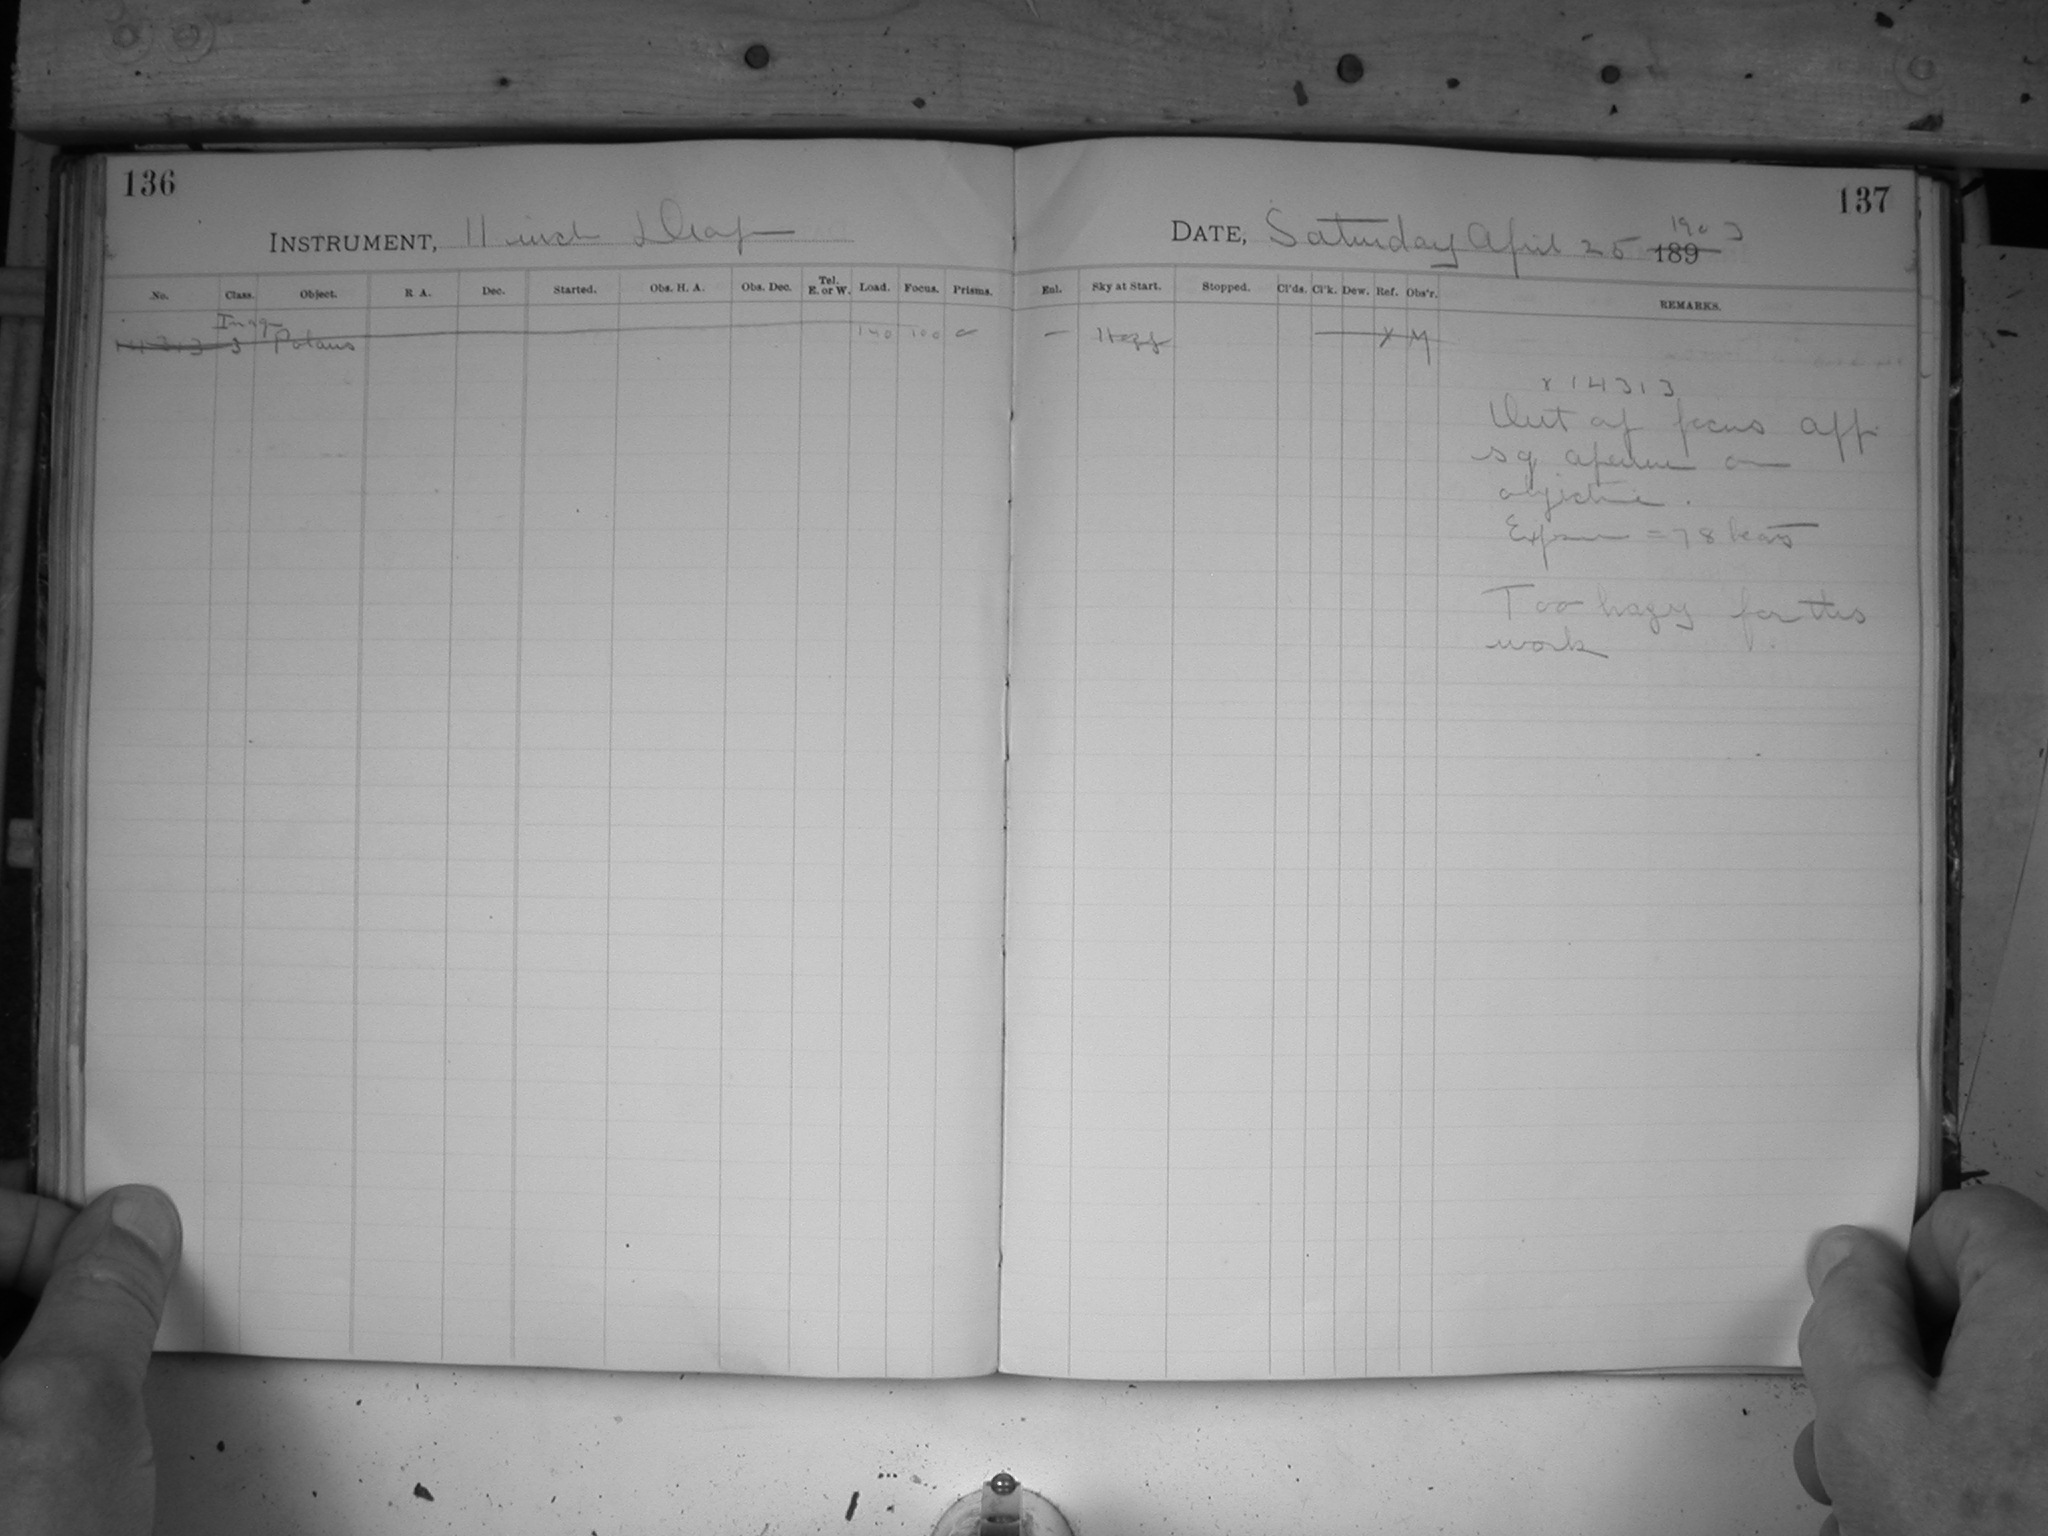 136
INSTRUMENT, 11 inch Drap
No. Class. Object. R A. Dec. Started. Obs. H. A. Obs. Dec. Tel. E. or W. Load. Focus. Prisms.
14313 3 Polaris 140 100 0
137
DATE, Saturday April 25 189 1903
Enl. Sky at Start. Stopped. Cl'ds. Cl'k. Dew. Ref. Obs'r. REMARKS.
— Hazy X M
x 14313
Out of focus app
sq aperture on
objective.
Exposure = 78 beats
Too hazy for this
work